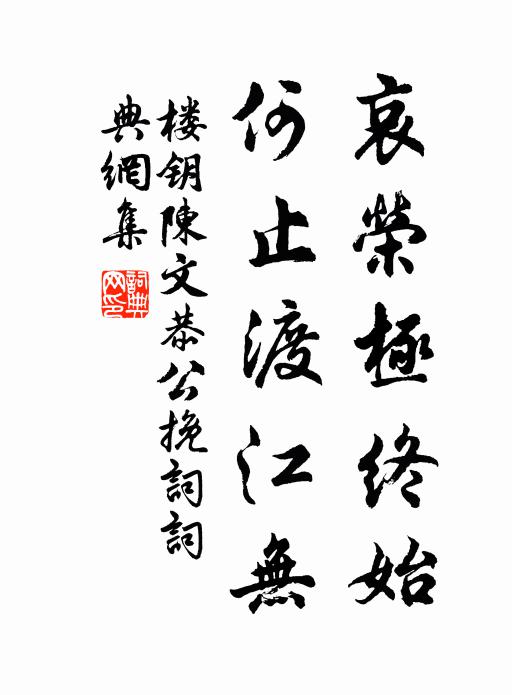 哀榮極終始
何止渡江無
楼钥陳文恭公挽詞詞
典網集
詞典網印